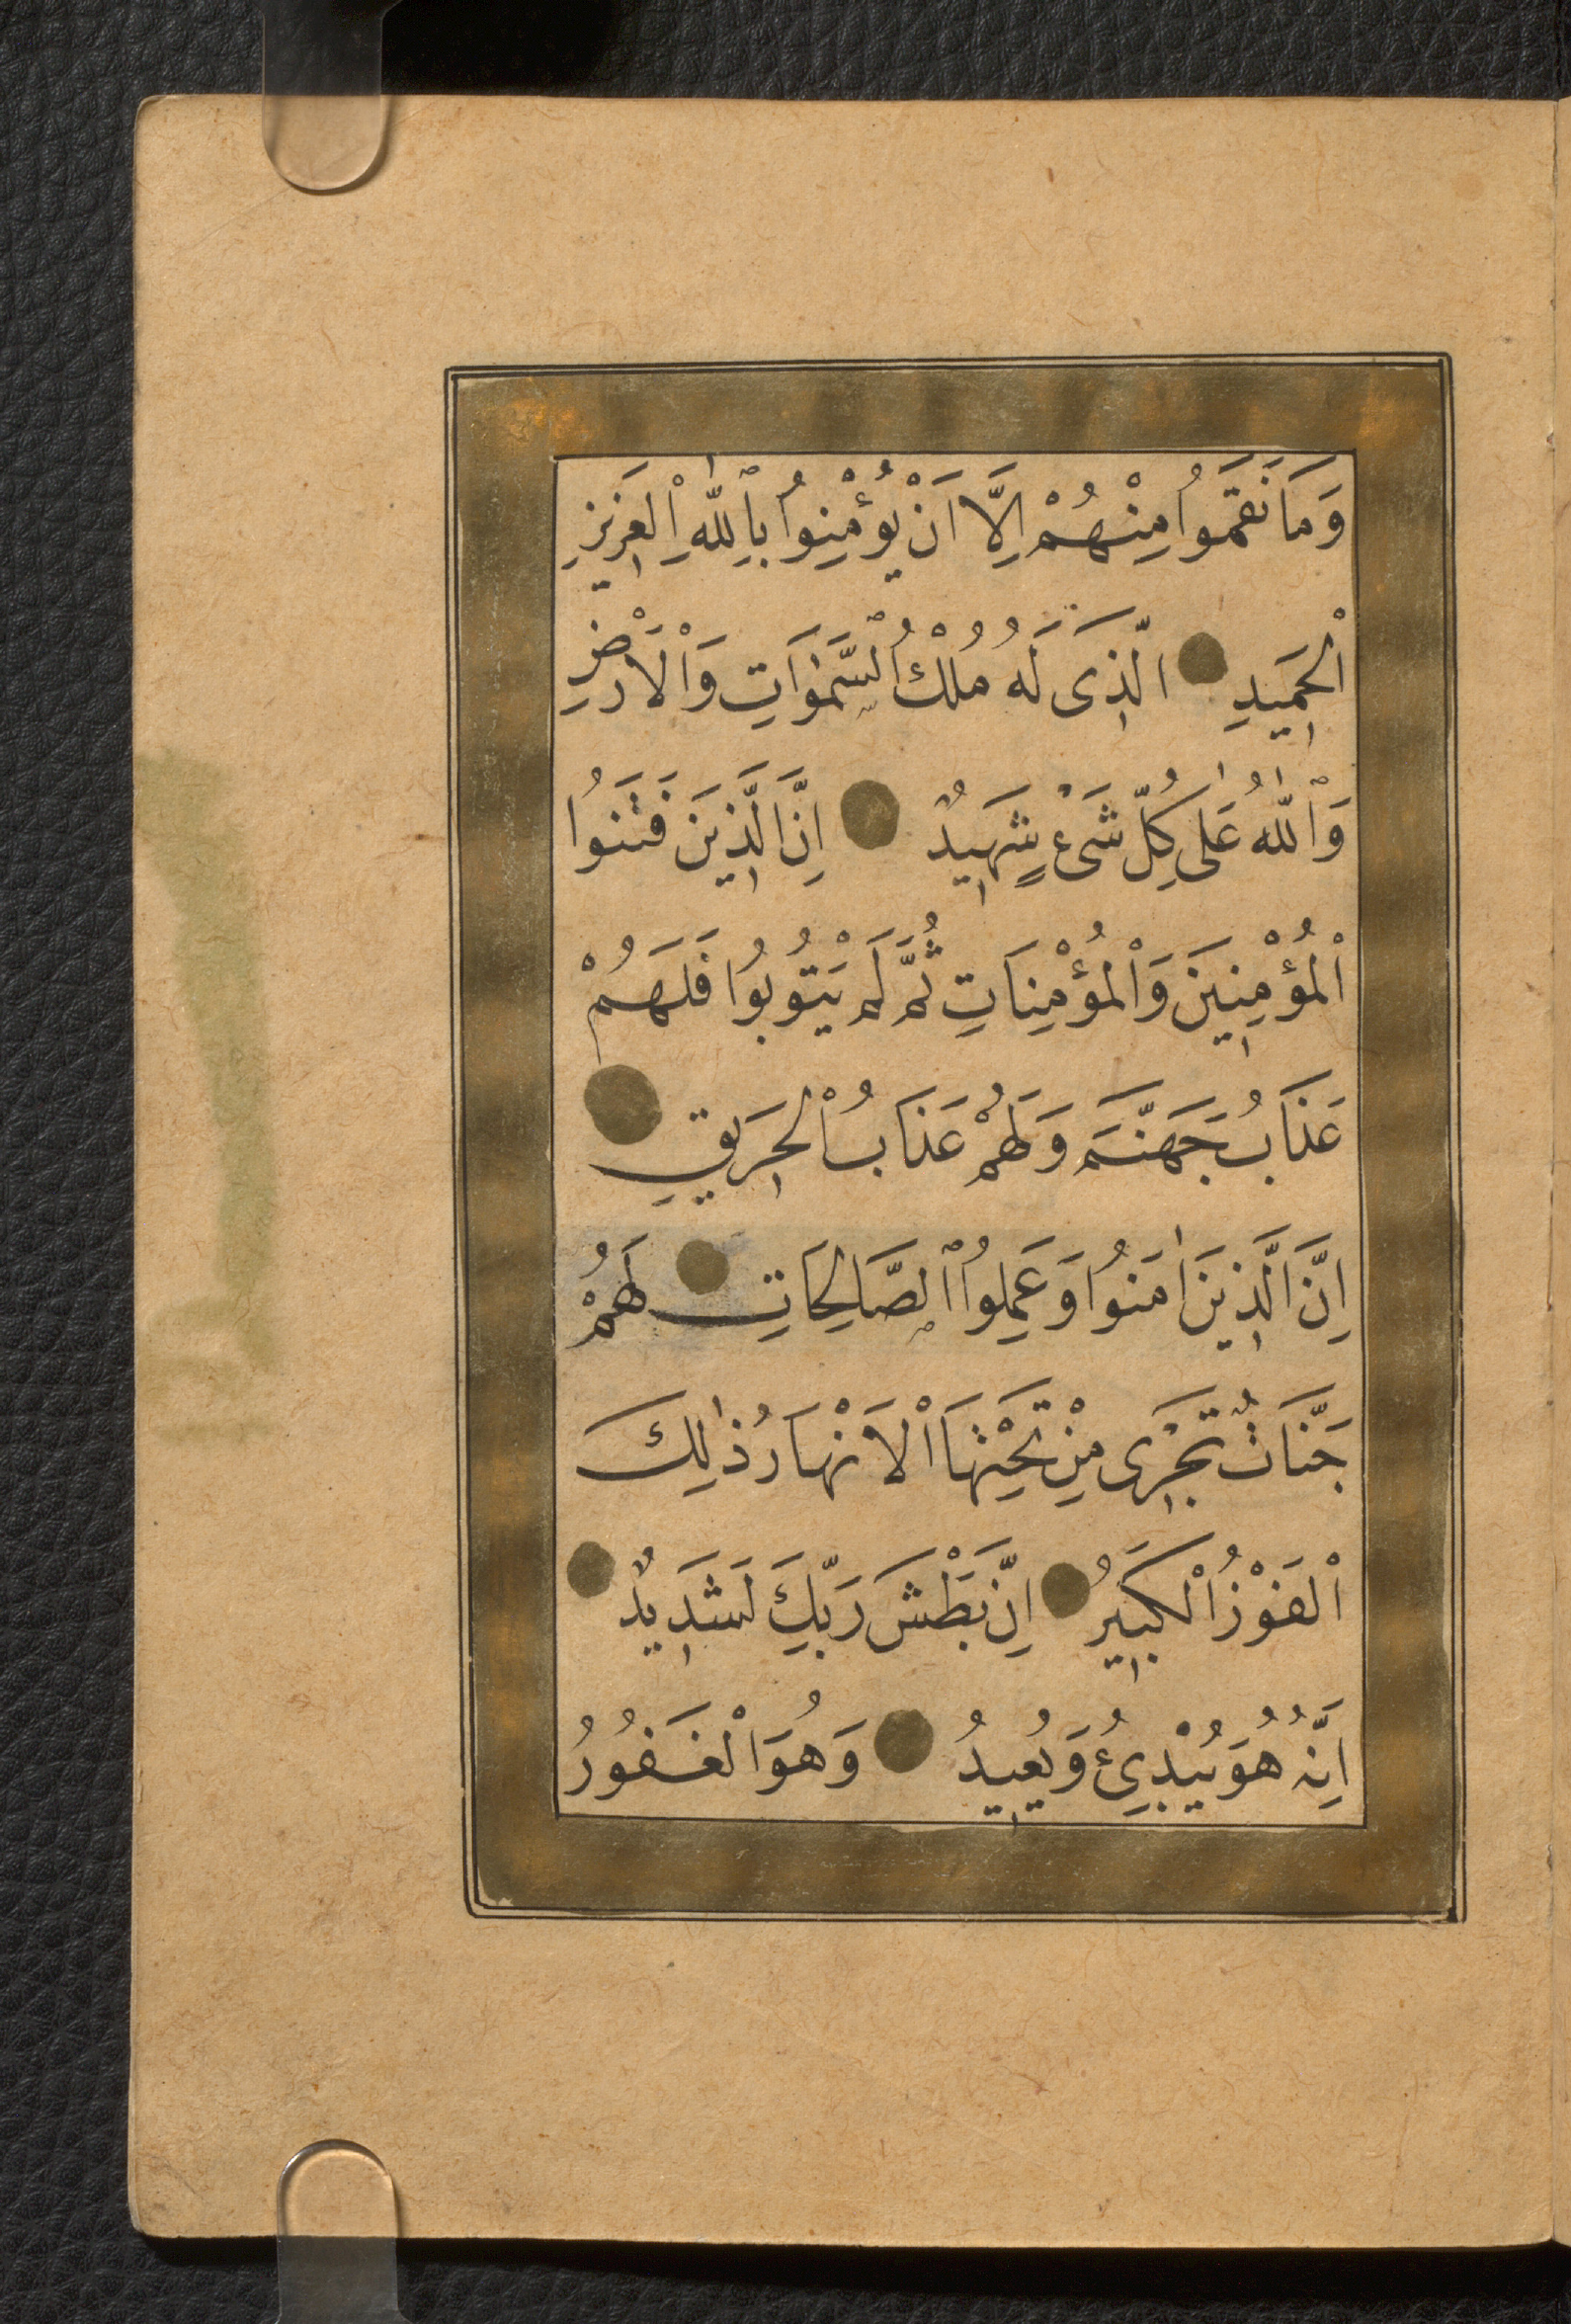 وَمَا نَقَمُوا مِنْهُمْ اِلَّا اَنْ يُؤْمِنُوا بِاللّٰهِ الْعَزِيزِ
الْحَمِيدِ الَّذِى لَهُ مُلْكُ السَّمٰوَاتِ وَالْاَرْضِ
وَاللّٰهُ عَلٰى كُلِّ شَىْءٍ شَهِيدٌ اِنَّ الَّذِينَ فَتَنُوا
الْمُؤْمِنِينَ وَالْمُؤْمِنَاتِ ثُمَّ لَمْ يَتُوبُوا فَلَهُمْ
عَذَابُ جَهَنَّمَ وَلَهُمْ عَذَابُ الْحَرِيقِ
اِنَّ الَّذِينَ اٰمَنُوا وَعَمِلُوا الصَّالِحَاتِ لَهُمْ
جَنَّاتٌ تَجْرِى مِنْ تَحْتِهَا الْاَنْهَارُ ذٰلِكَ
الْفَوْزُ الْكَبِيرُ اِنَّ بَطْشَ رَبِّكَ لَشَدِيدٌ
اِنَّهُ هُوَ يُبْدِئُ وَيُعِيدُ وَهُوَ الْغَفُورُ